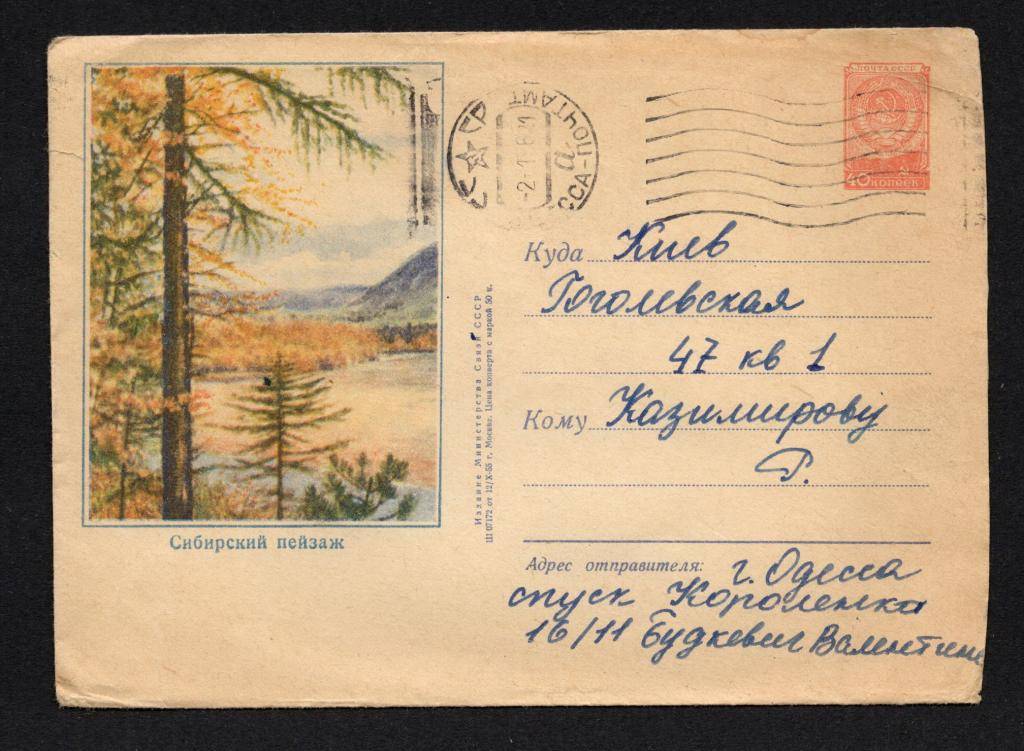 ПОЧТА СССР
40 КОПЕЕК
ССА-ПОЧТАМТ
а
Куда Киев
Гоголевская
47 кв 1
Кому Казимирову
Г.
Издание Министерства Связи СССР
Ш 07172 от 12/X-55 г. Москва. Цена конверта с маркой 50 к.
Сибирский пейзаж
Адрес отправителя: г. Одесса
спуск Короленка
16/11 Будкевич